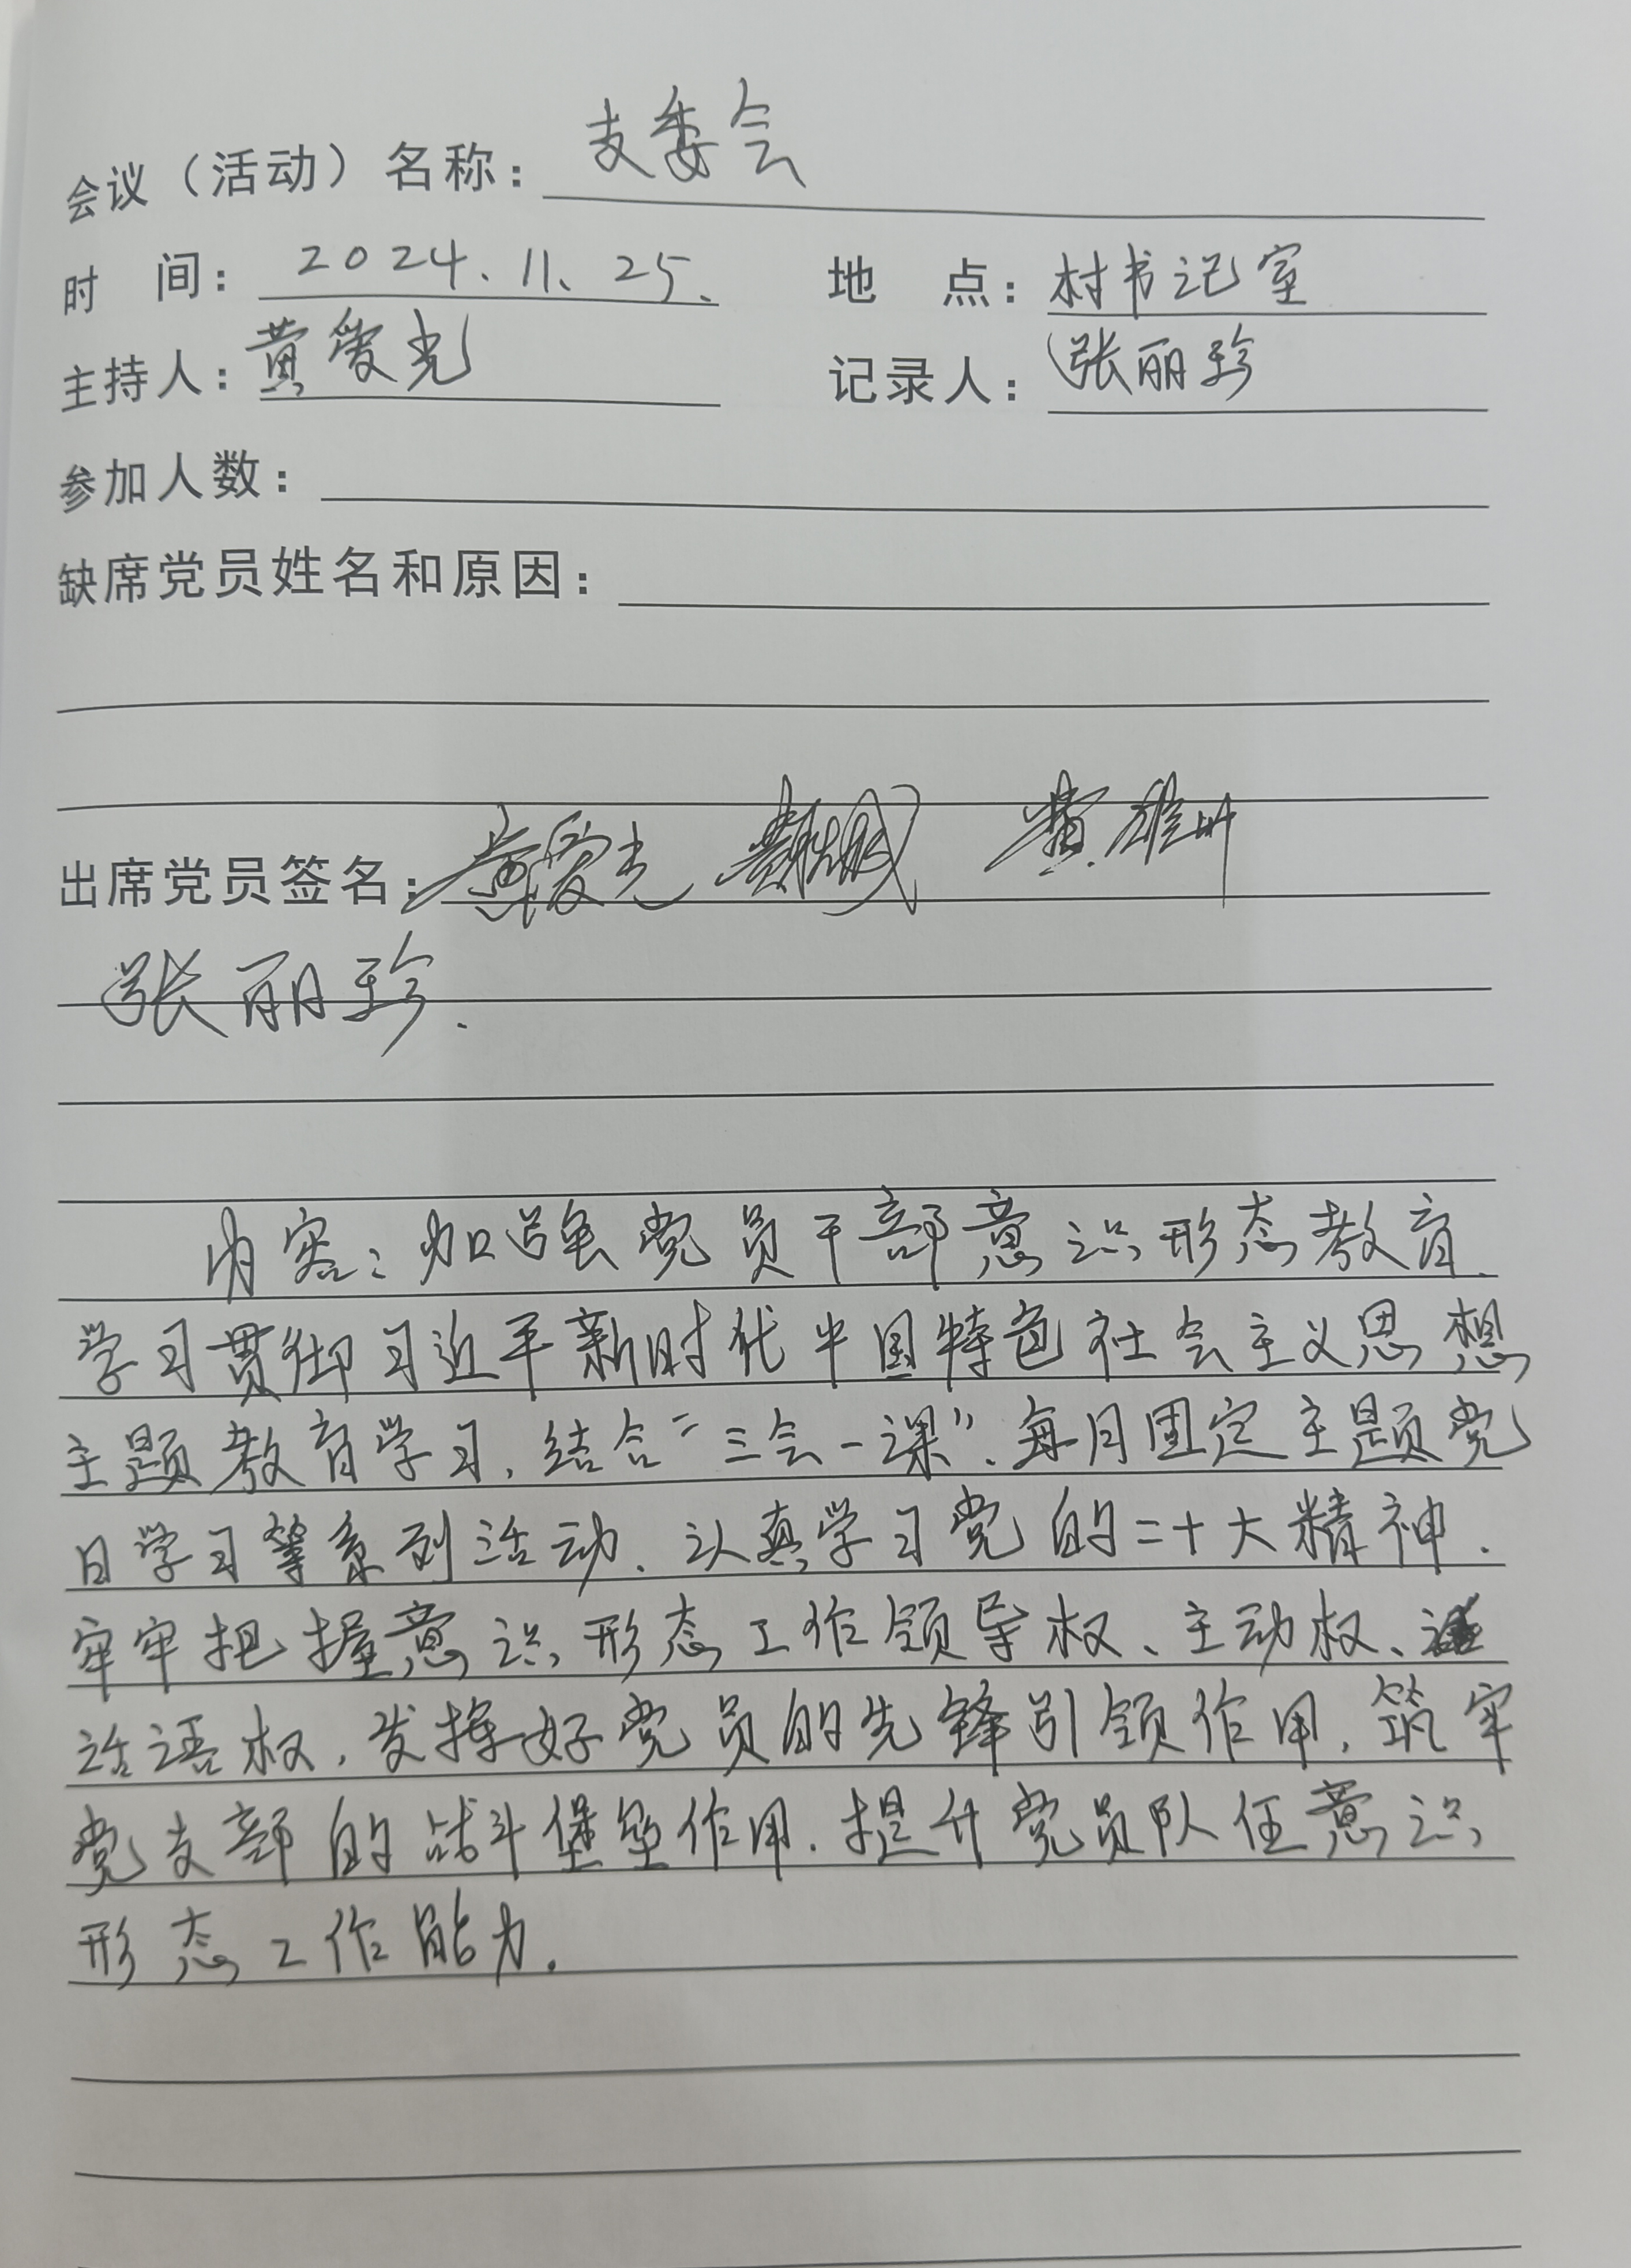 会议（活动）名称：支委会
时 间：2024、11、25、 地 点：村书记室
主持人：黄爱光 记录人：张丽珍
参加人数：
缺席党员姓名和原因：
出席党员签名：黄爱光 黄雄
张丽珍.
内容：加强党员干部意识形态教育、
学习贯彻习近平新时代中国特色社会主义思想
主题教育学习，结合“三会一课”、每月固定主题党
日学习等系列活动、认真学习党的二十大精神.
牢牢把握意识形态工作领导权、主动权、
话语权，发挥好党员的先锋引领作用，筑牢
党支部的战斗堡垒作用.提升党员队伍意识
形态工作能力.